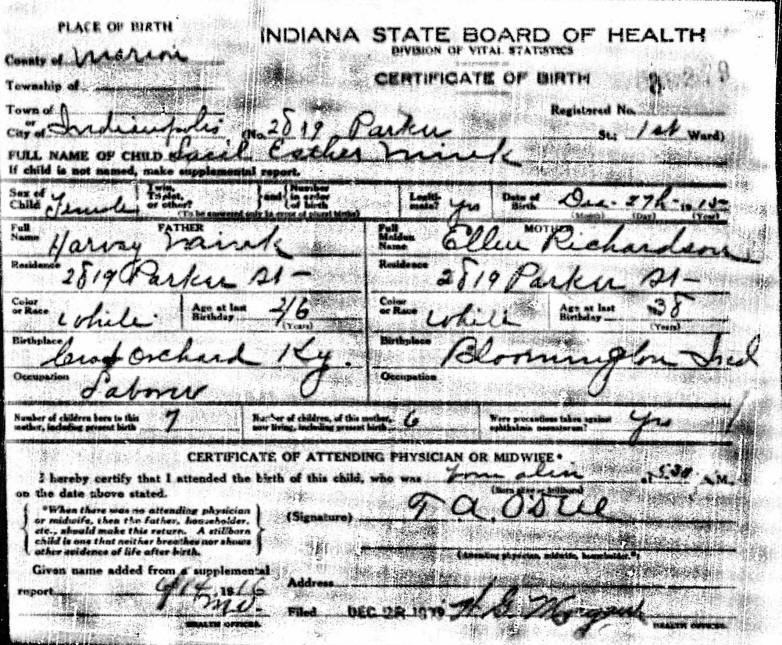 PLACE OF BIRTH
INDIANA STATE BOARD OF HEALTH
DIVISION OF VITAL STATISTICS
County of Marion
CERTIFICATE OF BIRTH
Township of
Town of
or
City of Indianapolis (No. 2819 Parker St; 1st Ward)
Registered No.
FULL NAME OF CHILD Esther
If child is not named, make supplemental report.
Sex of Child Female Twin, Triplet, or other? and Number in order of birth Legiti-mate? yes Date of Birth Dec 27th
(To be answered only in event of plural births) (Month) (Day) (Year)
FATHER MOTHER
Full Name Harvey Full Maiden Name Ellen Richardson
Residence 2819 Parker St- Residence 2819 Parker St-
Color or Race White Age at last Birthday (Years) Color or Race White Age at last Birthday 38 (Years)
Birthplace Orchard Ky. Birthplace Bloomington Ind
Occupation Laborer Occupation
Number of children born to this mother, including present birth 7 Number of children, of this mother, now living, including present birth 6 Were precautions taken against ophthalmia neonatorum? yes
CERTIFICATE OF ATTENDING PHYSICIAN OR MIDWIFE*
I hereby certify that I attended the birth of this child, who was born alive at 5:30 M.
(Born alive or stillborn)
on the date above stated.
*When there was no attending physician
or midwife, then the father, householder,
etc., should make this return. A stillborn
child is one that neither breathes nor shows
other evidence of life after birth.
(Signature) T. A.
(Attending physician, midwife, householder.*)
Given name added from a supplemental
report 1916
HEALTH OFFICER.
Address
Filed DEC 28 HEALTH OFFICER